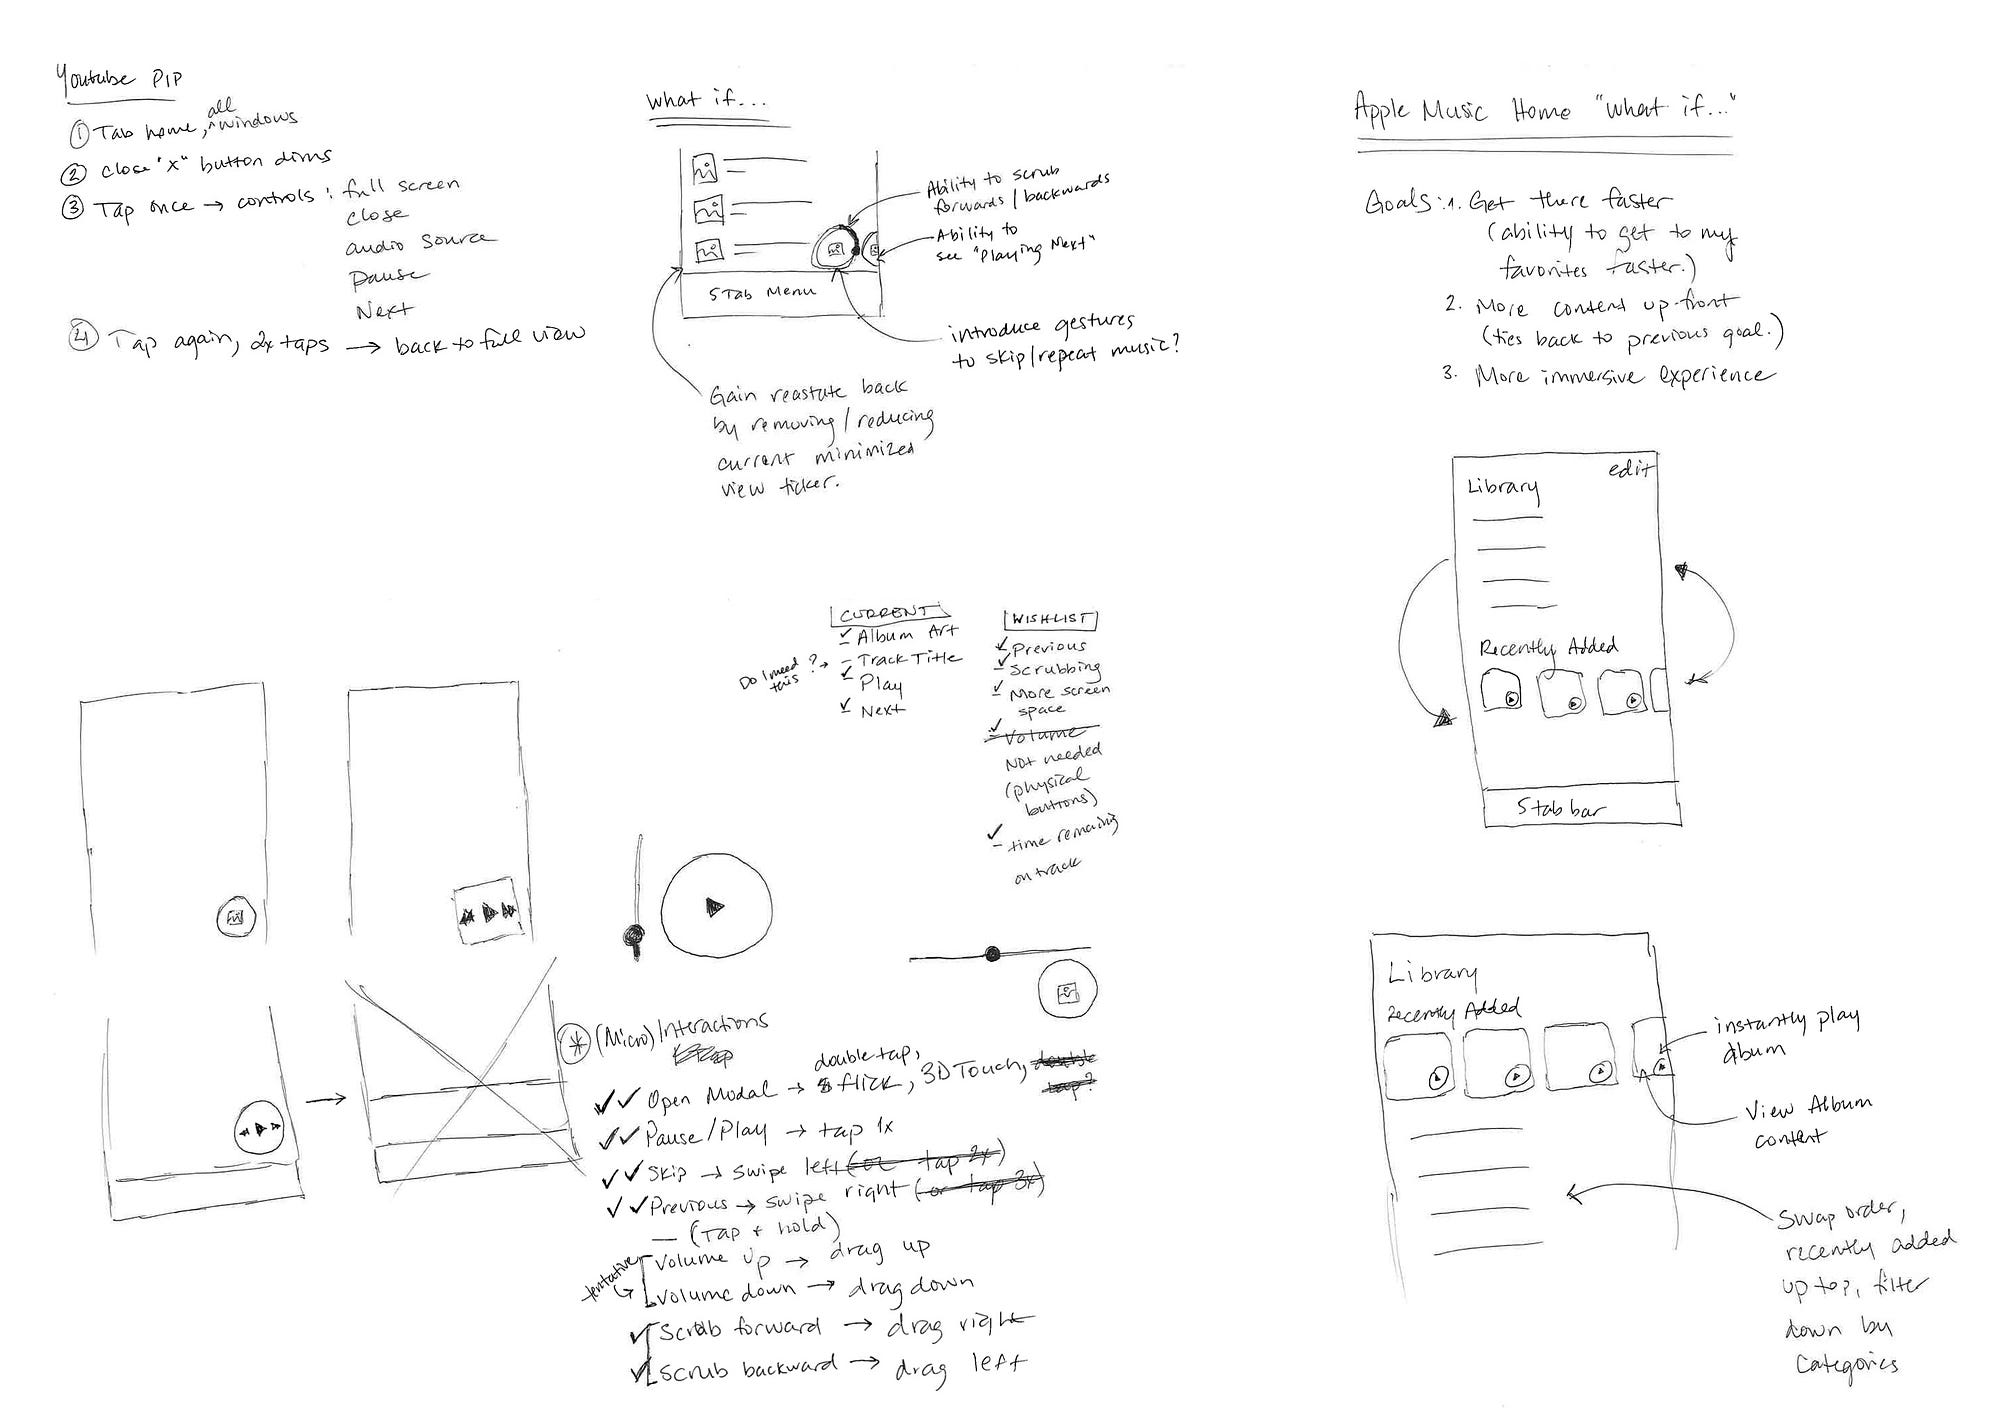 Youtube PIP
① Tab home, all windows
② close "x" button dims
③ Tap once → controls : full screen
close
audio source
Pause
Next
④ Tap again, 2x taps → back to full view
What if...
Ability to scrub
forwards / backwards
Ability to
see "Playing Next"
5 Tab Menu
introduce gestures
to skip/repeat music?
Gain reastate back
by removing / reducing
current minimized
view ticker.
Apple Music Home "What if..."
Goals: 1. Get there faster
(ability to get to my
favorites faster.)
2. More content up-front
(ties back to previous goal.)
3. More immersive experience
edit
Library
Recently Added
5 tab bar
CURRENT
✓ Album Art
Do I need this ? → - Track Title
✓ Play
✓ Next
WISHLIST
✓ Previous
✓ Scrubbing
✓ More screen
space
✓ Volume
Not needed
(physical
buttons)
✓ - time remaining
on track
(Micro) Interactions
✓✓ Open Modal → double tap, flick, 3D Touch, double tap?
✓✓ Pause/Play → tap 1x
✓✓ Skip → swipe left (or tap 2x)
✓✓ Previous → swipe right (or tap 3x)
— (Tap + hold)
tentative
Volume up → drag up
Volume down → drag down
✓ Scrub forward → drag right
✓ Scrub backward → drag left
Library
Recently Added
instantly play
album
View Album
content
Swap order,
recently added
up top, filter
down by
Categories